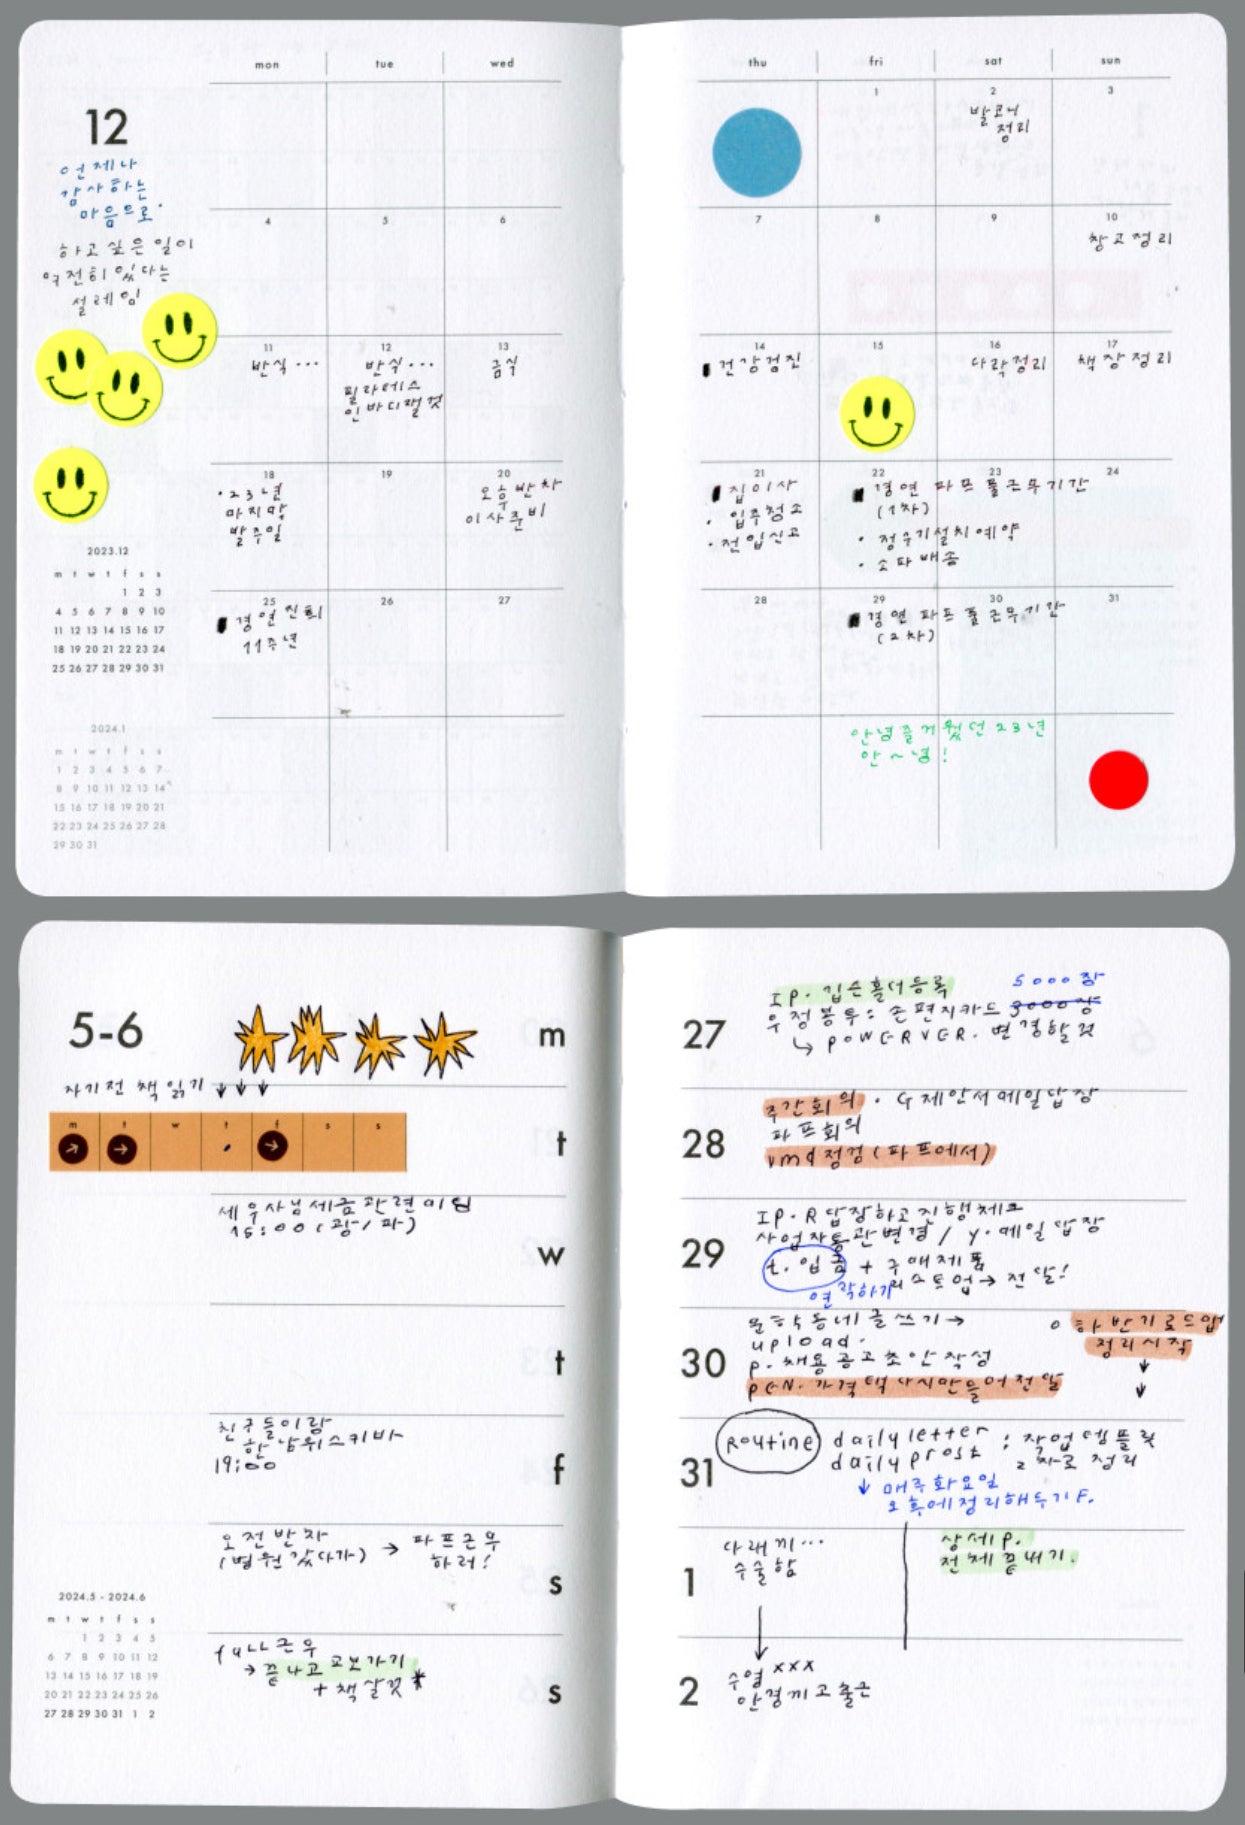 mon tue wed
12
언제나
감사하는
마음으로.
하고 싶은 일이
여전히 있다는
설레임
4 5 6
11 12 13
반식 ··· 반식 ··· 금식
필라테스
인바디잴것
18 19 20
· 23년
마지막
발주일
오후반차
이사준비
25 26 27
경연진희
11주년
2023.12
m t w t f s s
1 2 3
4 5 6 7 8 9 10
11 12 13 14 15 16 17
18 19 20 21 22 23 24
25 26 27 28 29 30 31
2024.1
m t w t f s s
1 2 3 4 5 6 7
8 9 10 11 12 13 14
15 16 17 18 19 20 21
22 23 24 25 26 27 28
29 30 31
thu fri sat sun
1 2 3
발코니
정리
7 8 9 10
창고정리
14 15 16 17
건강검진 다락정리 책장정리
21 22 23 24
집이사
· 입주청소
· 전입신고
경연 파프 풀근무기간
(1차)
· 정수기설치예약
· 소파배송
28 29 30 31
경연 파프 풀근무기간
(2차)
안녕즐거웠던 23년
안~녕!
5-6
자기전 책 읽기 ↓ ↓ ↓
m t w t f s s
m
t
세무사님세금관련미팅
15:00 (광/파)
w
t
친구들이랑
한남위스키바
19:00
f
오전반차
(병원갔다가) → 파프근무
하러!
s
full근무
→ 끝나고 교보가기
+ 책살것 *
s
2024.5 - 2024.6
m t w t f s s
1 2 3 4 5
6 7 8 9 10 11 12
13 14 15 16 17 18 19
20 21 22 23 24 25 26
27 28 29 30 31 1 2
27
IP. 집슨홀더등록 5000장
우정봉투: 손편지카드 3000장
↳ POWERVER. 변경할것
28
주간회의 · G제안서메일답장
파프회의
vmd점검(파프에서)
29
IP·R답장하고진행체크
사업자통관변경 / y.메일답장
t.입금 + 구매제품
연락하기 리스트업 → 전달!
30
문학동네글쓰기 →
upload.
p.채용공고초안작성
pen.가격택다시만들어전달
o 하반기로드맵
정리시작
↓
↓
31
Routine dailyletter : 작업템플릿
dailyprost 2차로정리
↓ 매주화요일
오후에정리해두기F.
1
다래끼···
수술함
↓
상세p.
전체끝내기.
2
수영xxx
안경끼고출근